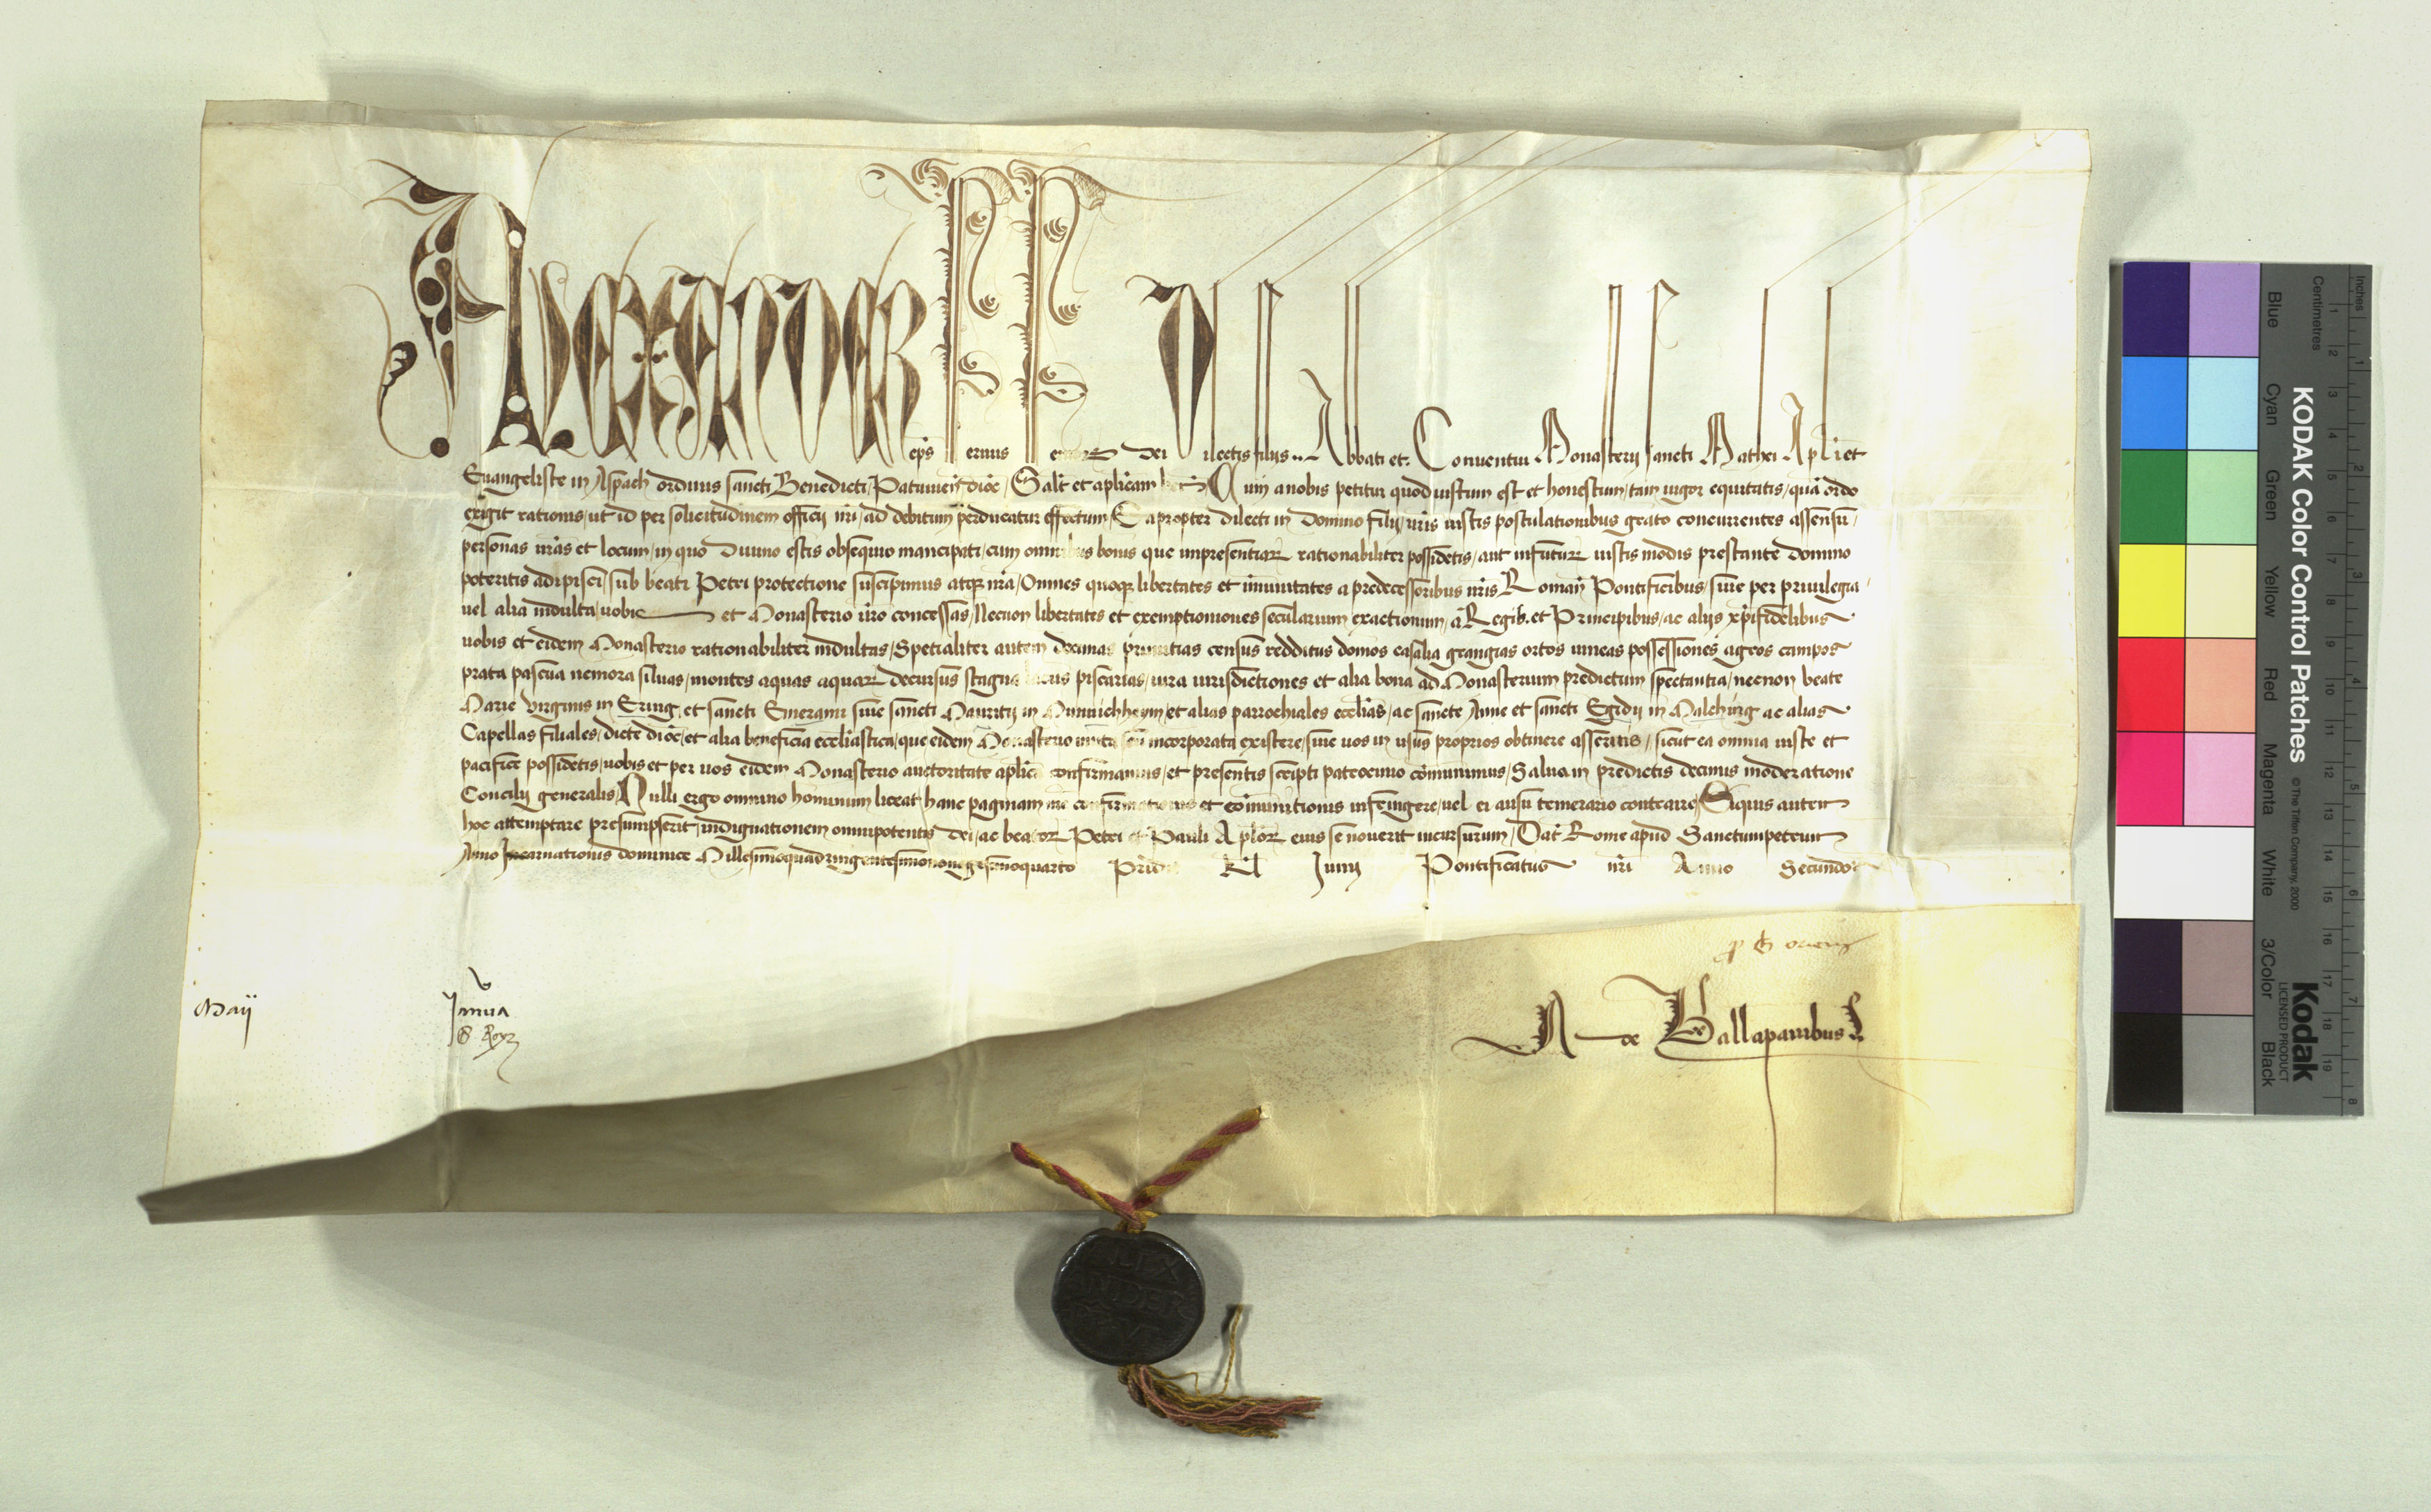 Alexander eps seruus seruor dei Dilectis filijs .. Abbati et Conuentui Monasterij sancti Mathei Apli et
Euangeliste in Aspach ordinis sancti Benedicti, Patauien dioc, Salt et aplicam ben, Cum a nobis petitur quod iustum est et honestum, tam uigor equitatis, quā ordo
exigit rationis, ut id per solicitudinem officij nri, ad debitum perducatur effectum, Eapropter dilecti in domino filij, uris iustis postulationibus grato concurrentes assensu,
personas uras et locum, in quo diuino estis obsequio mancipati, cum omnibus bonis que impresentiar rationabiliter possidetis, aut infutur iustis modis prestante domino
poteritis adipisci, sub beati Petri protectione suscipimus atq nra, Omnes quoq libertates et imunitates a predecessoribus nris Roman Pontificibus, siue per priuilegia,
uel alia indulta uobis et Monasterio uro concessas, Necnon libertates et exemptiones secularium exactionum, a Regib. et Principibus, ac alijs xpifidelibus
uobis et eidem Monasterio rationabiliter indultas, Spetialiter autem decimas primitias census redditus domos casalia grangias ortos uineas possessiones agros campos
prata pascua nemora siluas, montes aquas aquar decursus stagna lacus piscarias, iura iurisdictiones et alia bona ad Monasterium predictum spectantia, necnon beate
Marie Virginis in Ering, et sancti Emerami siue sancti Mauritij in Munnichheym, et alias parrochiales ecclias, ac sancte Anne et sancti Egidij in Malching ac alias
Capellas filiales, dicte dioc, et alia beneficia eccliastica, que eidem Monasterio unita seu incorporata existere, siue uos in usus proprios obtinere asseritis, sicut ea omnia iuste et
pacifice possidetis, uobis et per uos eidem Monasterio auctoritate aplica confirmamus, et presentis scripti patrocinio comunimus, Salua in predictis decimis moderatione
Concilij generalis, Nulli ergo omnino hominum liceat hanc paginam nre confirmationis et comunitionis infringere, uel ei ausu temerario contraire, Siquis autem
hoc attemptare presumpserit, indignationem omnipotentis dei, ac beator Petri et Pauli Aplor eius se nouerit incursurum, Dat Rome apud Sanctumpetrum
Anno Incarnationis dominice Millesimoquadringentesimononagesimoquarto Prid Kl Junij Pontificatus nri Anno Secundo
Maij
N de Casapambus